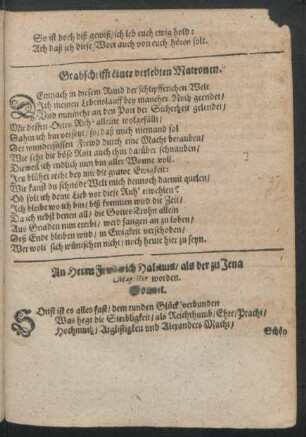 So ist doch diß gewiß/ ich leb euch ewig hold:
Ach daß ich diese Wort auch von euch hören solt.
Grabschrifft einer verlebten Matronen.
DEmnach in diesem Rund der schlipfferichen Welt
Ich meinen Lebenslauff bey mancher Noth geendet/
Und nunmehr an den Port der Sicherheit gelendet/
Mir dessen Ortes Ruh' alleine wolgefällt;
Dahin ich bin verseut: so/ daß mich niemand sol
Der wundersüssen Frewd durch eine Macht berauben/
Wie sehr die böse Rott auch thut darüber schnauben/
Dieweil ich endlich nun bin aller Wonne voll.
Itzt blühet recht bey mir die grawe Ewigkeit:
Wie kanst du schnöde Welt mich dennoch darmit quelen/
Ob solt ich deine Lieb vor diese Ruh' erwehlen?
Ich bleibe wo ich bin/ biß kommen wird die Zeit/
Da ich nebst denen all/ die Gottes Sohn allein
Aus Gnaden nun ererbt/ werd fangen an zu loben/
Deß Ende bleiben wird/ in Ewigkeit verschoben/
Wer wolt sich wünschen nicht/ noch heute hier zu seyn.
An Herrn Friderich Halmius/ als der zu Jena
Magister worden.
Sonnet.
SOnst ist es alles fast/ dem runden Glück/ verbunden
Was hegt die Sterbligkeit/ als Reichthumb/ Ehre/ Pracht/
Hochmuth/ Arglistigkeit und Alexanders Macht/
Schön